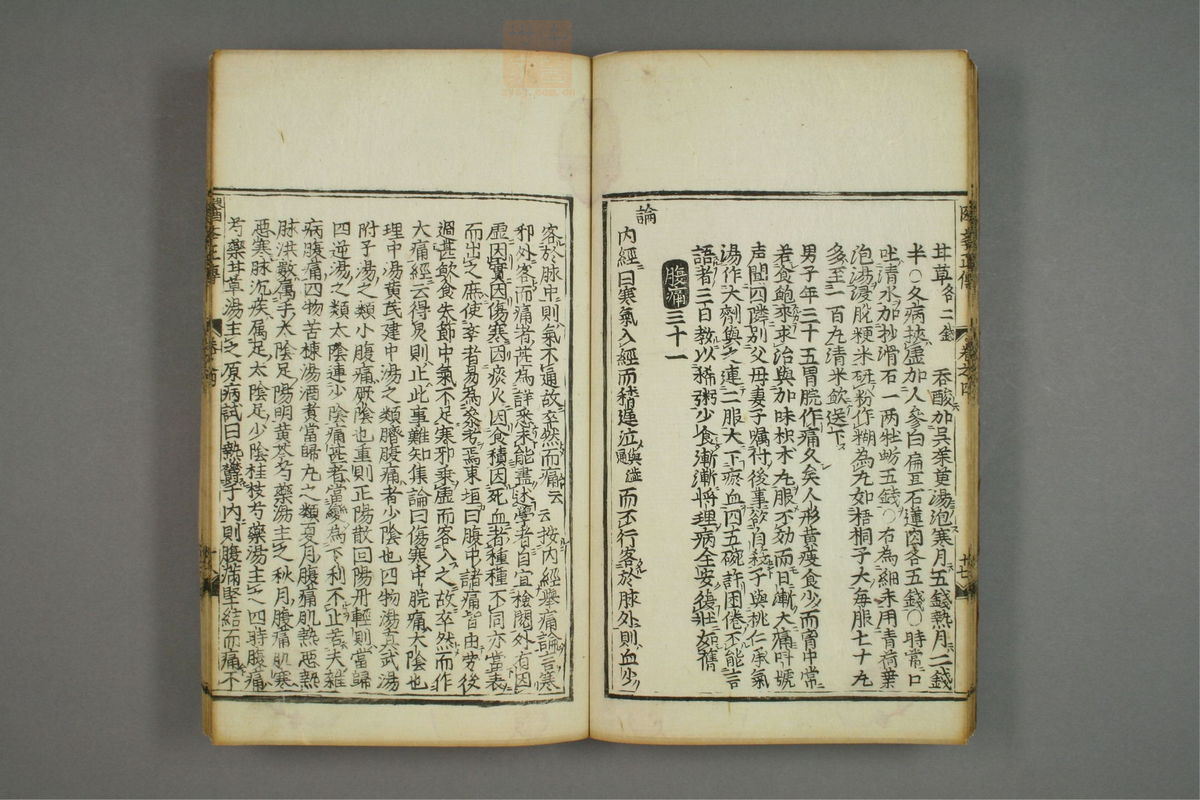 甘草各二錢　吞酸加吳茱萸湯泡寒月五錢熱月二錢
半○久病挾虛加人參白扁豆石蓮肉各五錢○時常口
吐清水加抄滑石一兩牡蛎五錢○右為細末用青荷葉
泡湯浸脫粳米研粉作糊為丸如梧桐子大每服七十丸
多至一百丸清米飲送下
男子年三十五胃脘作痛久矣人形黃瘦食少而胃中常
若食飽來求治與加味枳术丸服不効而日漸大痛叫號
声聞四隣別父母妻子囑付後事欲自縊予與桃仁承氣
湯作大劑與之連二服大下瘀血四五碗許困倦不能言
語者三日教以稀粥少食漸漸將理病全安復壯如舊
腹痛三十一
論
內經曰寒氣入經而稽遲泣與澁同而不行客於脉外則血少
客於脉中則氣不通故卒然而痛云云按內經舉痛論言寒
邪外客而痛者甚為詳悉未能盡述學者自宜檢閱外有因
虛因實因傷寒因痰火因食積因死血者種種不同亦當表
而出之庶使孝者易為參考焉東垣曰腹中諸痛皆由勞後
過甚飲食失節中氣不足寒邪乘虛而客入之故卒然而作
大痛經云得炅則止此事難知集論曰傷寒中脘痛太陰也
理中湯黃芪建中湯之類臍腹痛者少陰也四物湯真武湯
附子湯之類小腹痛厥陰也重則正陽散回陽丹輕則當歸
四逆湯之類太陰連少陰痛甚者當變為下利不止若夫雜
病腹痛四物苦楝湯酒煮當歸丸之類夏月腹痛肌熱惡熱
脉洪數属手太陰足陽明黃芩芍藥湯主之秋月腹痛肌寒
惡寒脉沉疾属足太陰足少陰桂枝芍藥湯主之四時腹痛
芍藥甘草湯主之原病試曰熱鬱于內則腹滿堅結而痛不